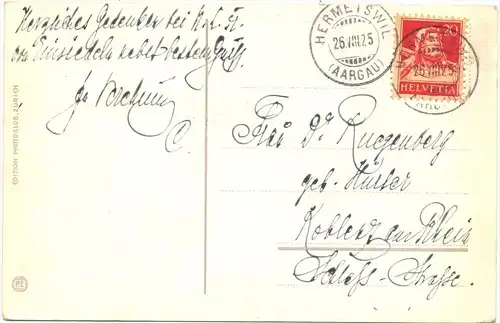 Herzliches Gedenken bei
Einsiedeln nebst besten Gruß.
C.
HERMETSWIL
26.VIII.25
(AARGAU)
20
HELVETIA
26.VIII.25
Frau Dr. Ruegenberg
geb. Hüsser
Koblenz am Rhein
Schloß-Strasse.
EDITION PHOTOGLOB, ZÜRICH
PZ